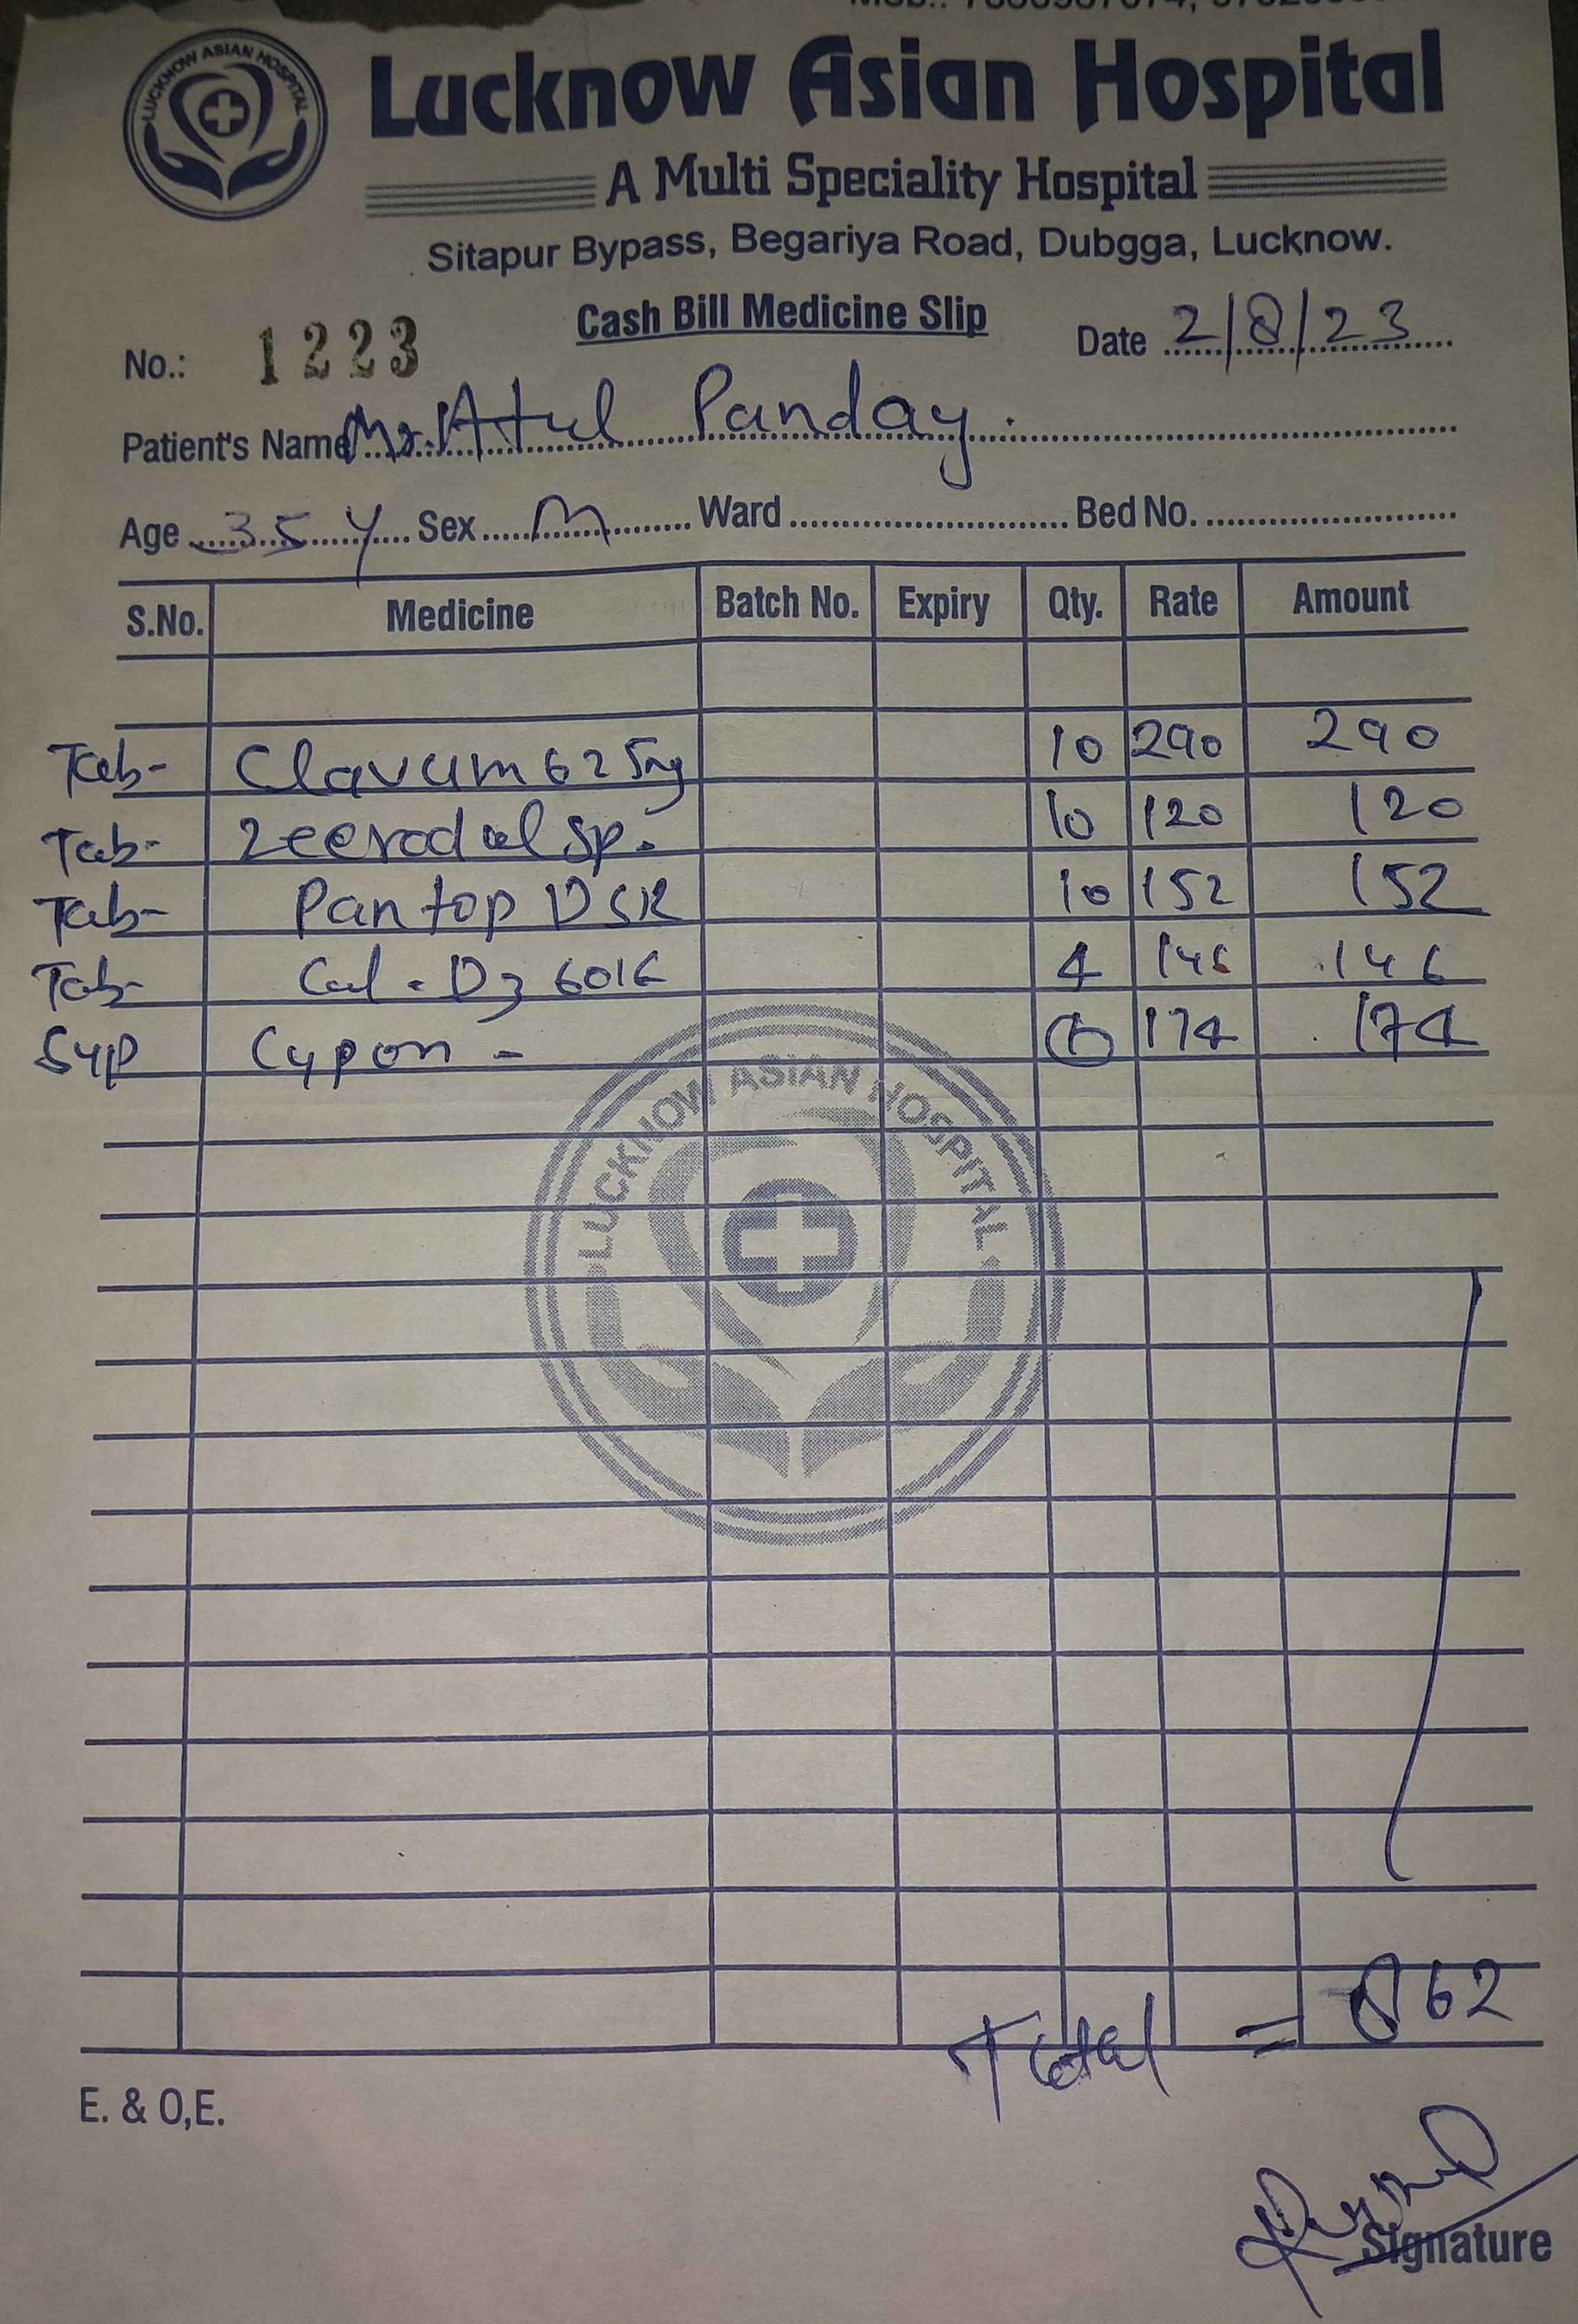 LUCKNOW ASIAN HOSPITAL
Lucknow Asian Hospital
A Multi Speciality Hospital
Sitapur Bypass, Begariya Road, Dubgga, Lucknow.
Cash Bill Medicine Slip
No.: 1223 Date 2/8/23
Patient's Name Mr. Atul Panday.
Age 35 Y Sex M Ward Bed No.
S.No. Medicine Batch No. Expiry Qty. Rate Amount
Tab- Clavum 625mg 10 290 290
Tab- Zeerodol Sp. 10 120 120
Tab- Pantop DSR 10 152 152
Tab- Cal. D3 60K 4 146 146
Syp Cypon - 1 174 174
LUCKNOW ASIAN HOSPITAL
Total = 862
E. & O,E.
Signature